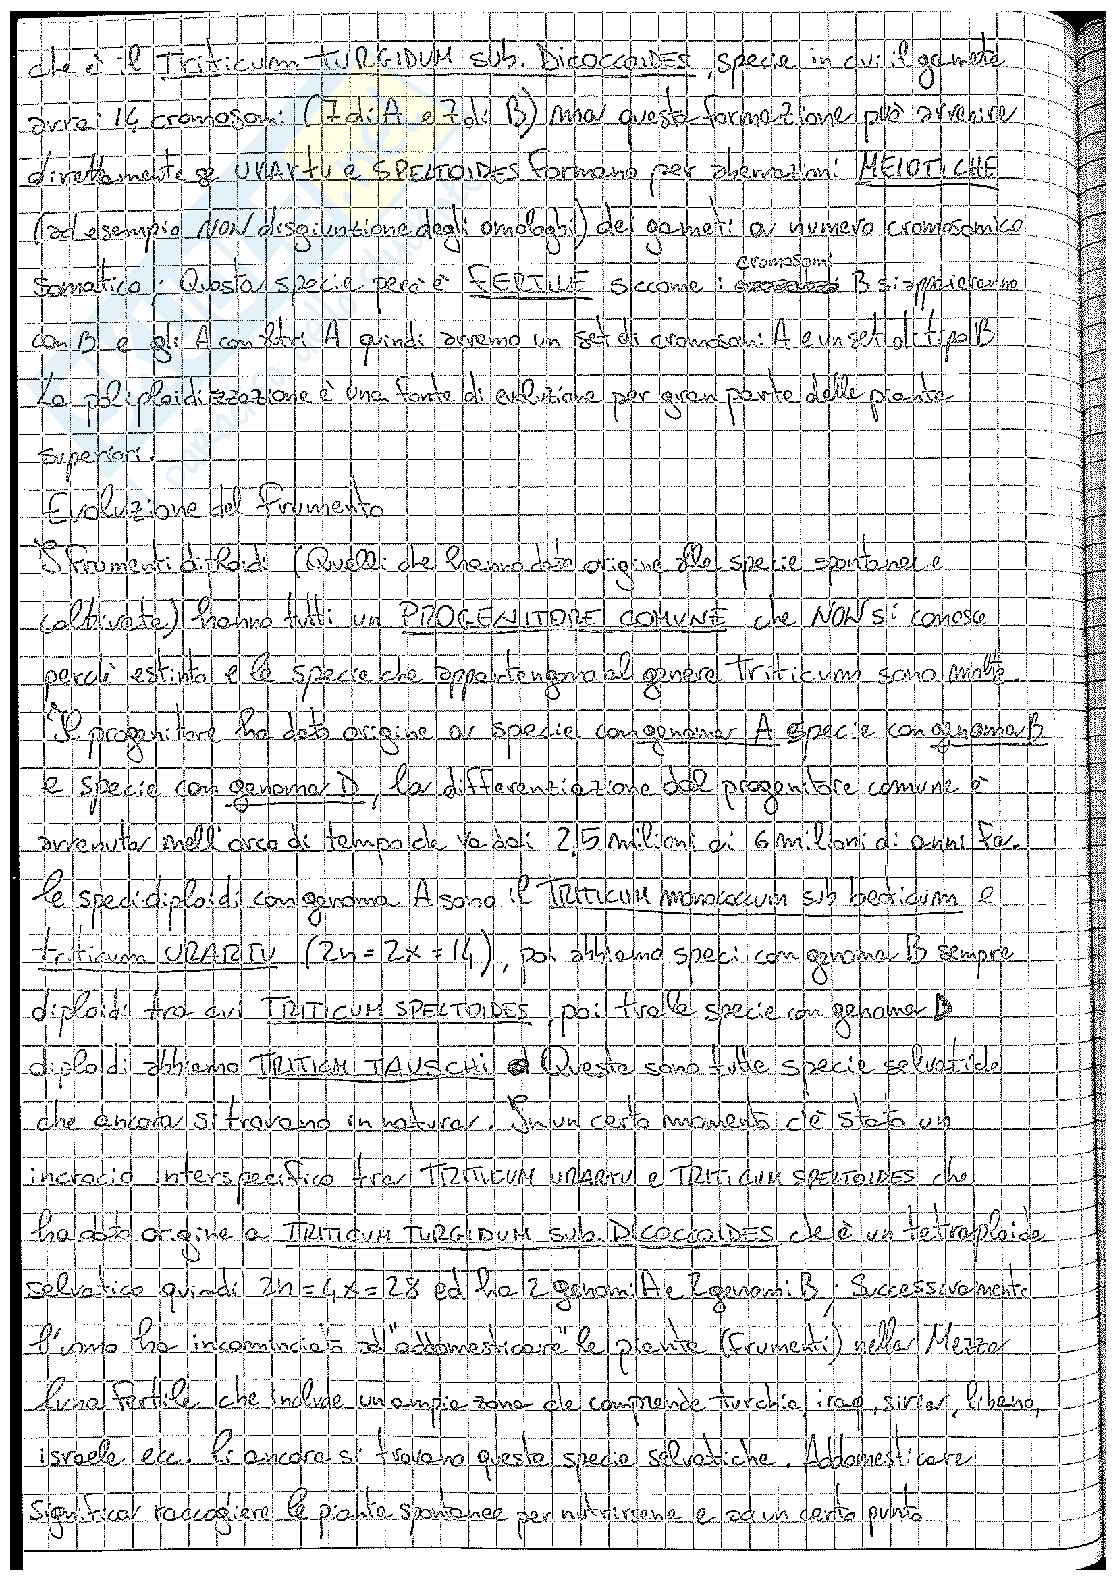 che è il Triticum TURGIDUM sub. DICOCCOIDES, specie in cui il gamete
avrà 14 cromosomi (7 di A e 7 di B) ma questa formazione può avvenire
direttamente se URARTU e SPELTOIDES formano per aberrazioni MEIOTICHE
(ad esempio NON disgiunzione degli omologhi) dei gameti a numero cromosomico
somatico; Questa specie però è FERTILE siccome i cromosomi B si appaieranno
con B e gli A con altri A quindi avremo un set di cromosomi A e un set di tipo B
La poliploidizzazione è una fonte di evoluzione per gran parte delle piante
superiori.
Evoluzione del frumento
I Frumenti diploidi (Quelli che hanno dato origine alle specie spontanee e
coltivate) hanno tutti un PROGENITORE COMUNE che NON si conosce
perchè estinto e le specie che appartengono al genere Triticum sono molte
Il progenitore ha dato origine a specie con genoma A specie con genoma B
e specie con genoma D, la differenziazione dal progenitore comune è
avvenuta nell'arco di tempo che va dai 2,5 milioni ai 6 milioni di anni fa.
le speci diploidi con genoma A sono il TRITICUM monococcum sub beoticum e
triticum URARTU (2n=2x=14), poi abbiamo speci con genoma B sempre
diploidi tra cui TRITICUM SPELTOIDES, poi tra le specie con genoma D
diploidi abbiamo TRITICUM TAUSCHI Queste sono tutte specie selvatiche
che ancora si trovano in natura. In un certo momento c'è stato un
incrocio interspecifico tra TRITICUM URARTU e TRITICUM SPELTOIDES che
ha dato origine a TRITICUM TURGIDUM sub. DICOCCOIDES che è un tetraploide
selvatico quindi 2n=4x=28 ed ha 2 genomi A e 2 genomi B; Successivamente
l'uomo ha incominciato ad "addomesticare" le piante (Frumenti) nella Mezza
luna Fertile che include un ampia zona che comprende turchia, iraq, siria, libano,
israele ecc. lì ancora si trovano queste specie selvatiche. Addomesticare
significa raccogliere le piante spontanee per nutrirsene e ad un certo punto